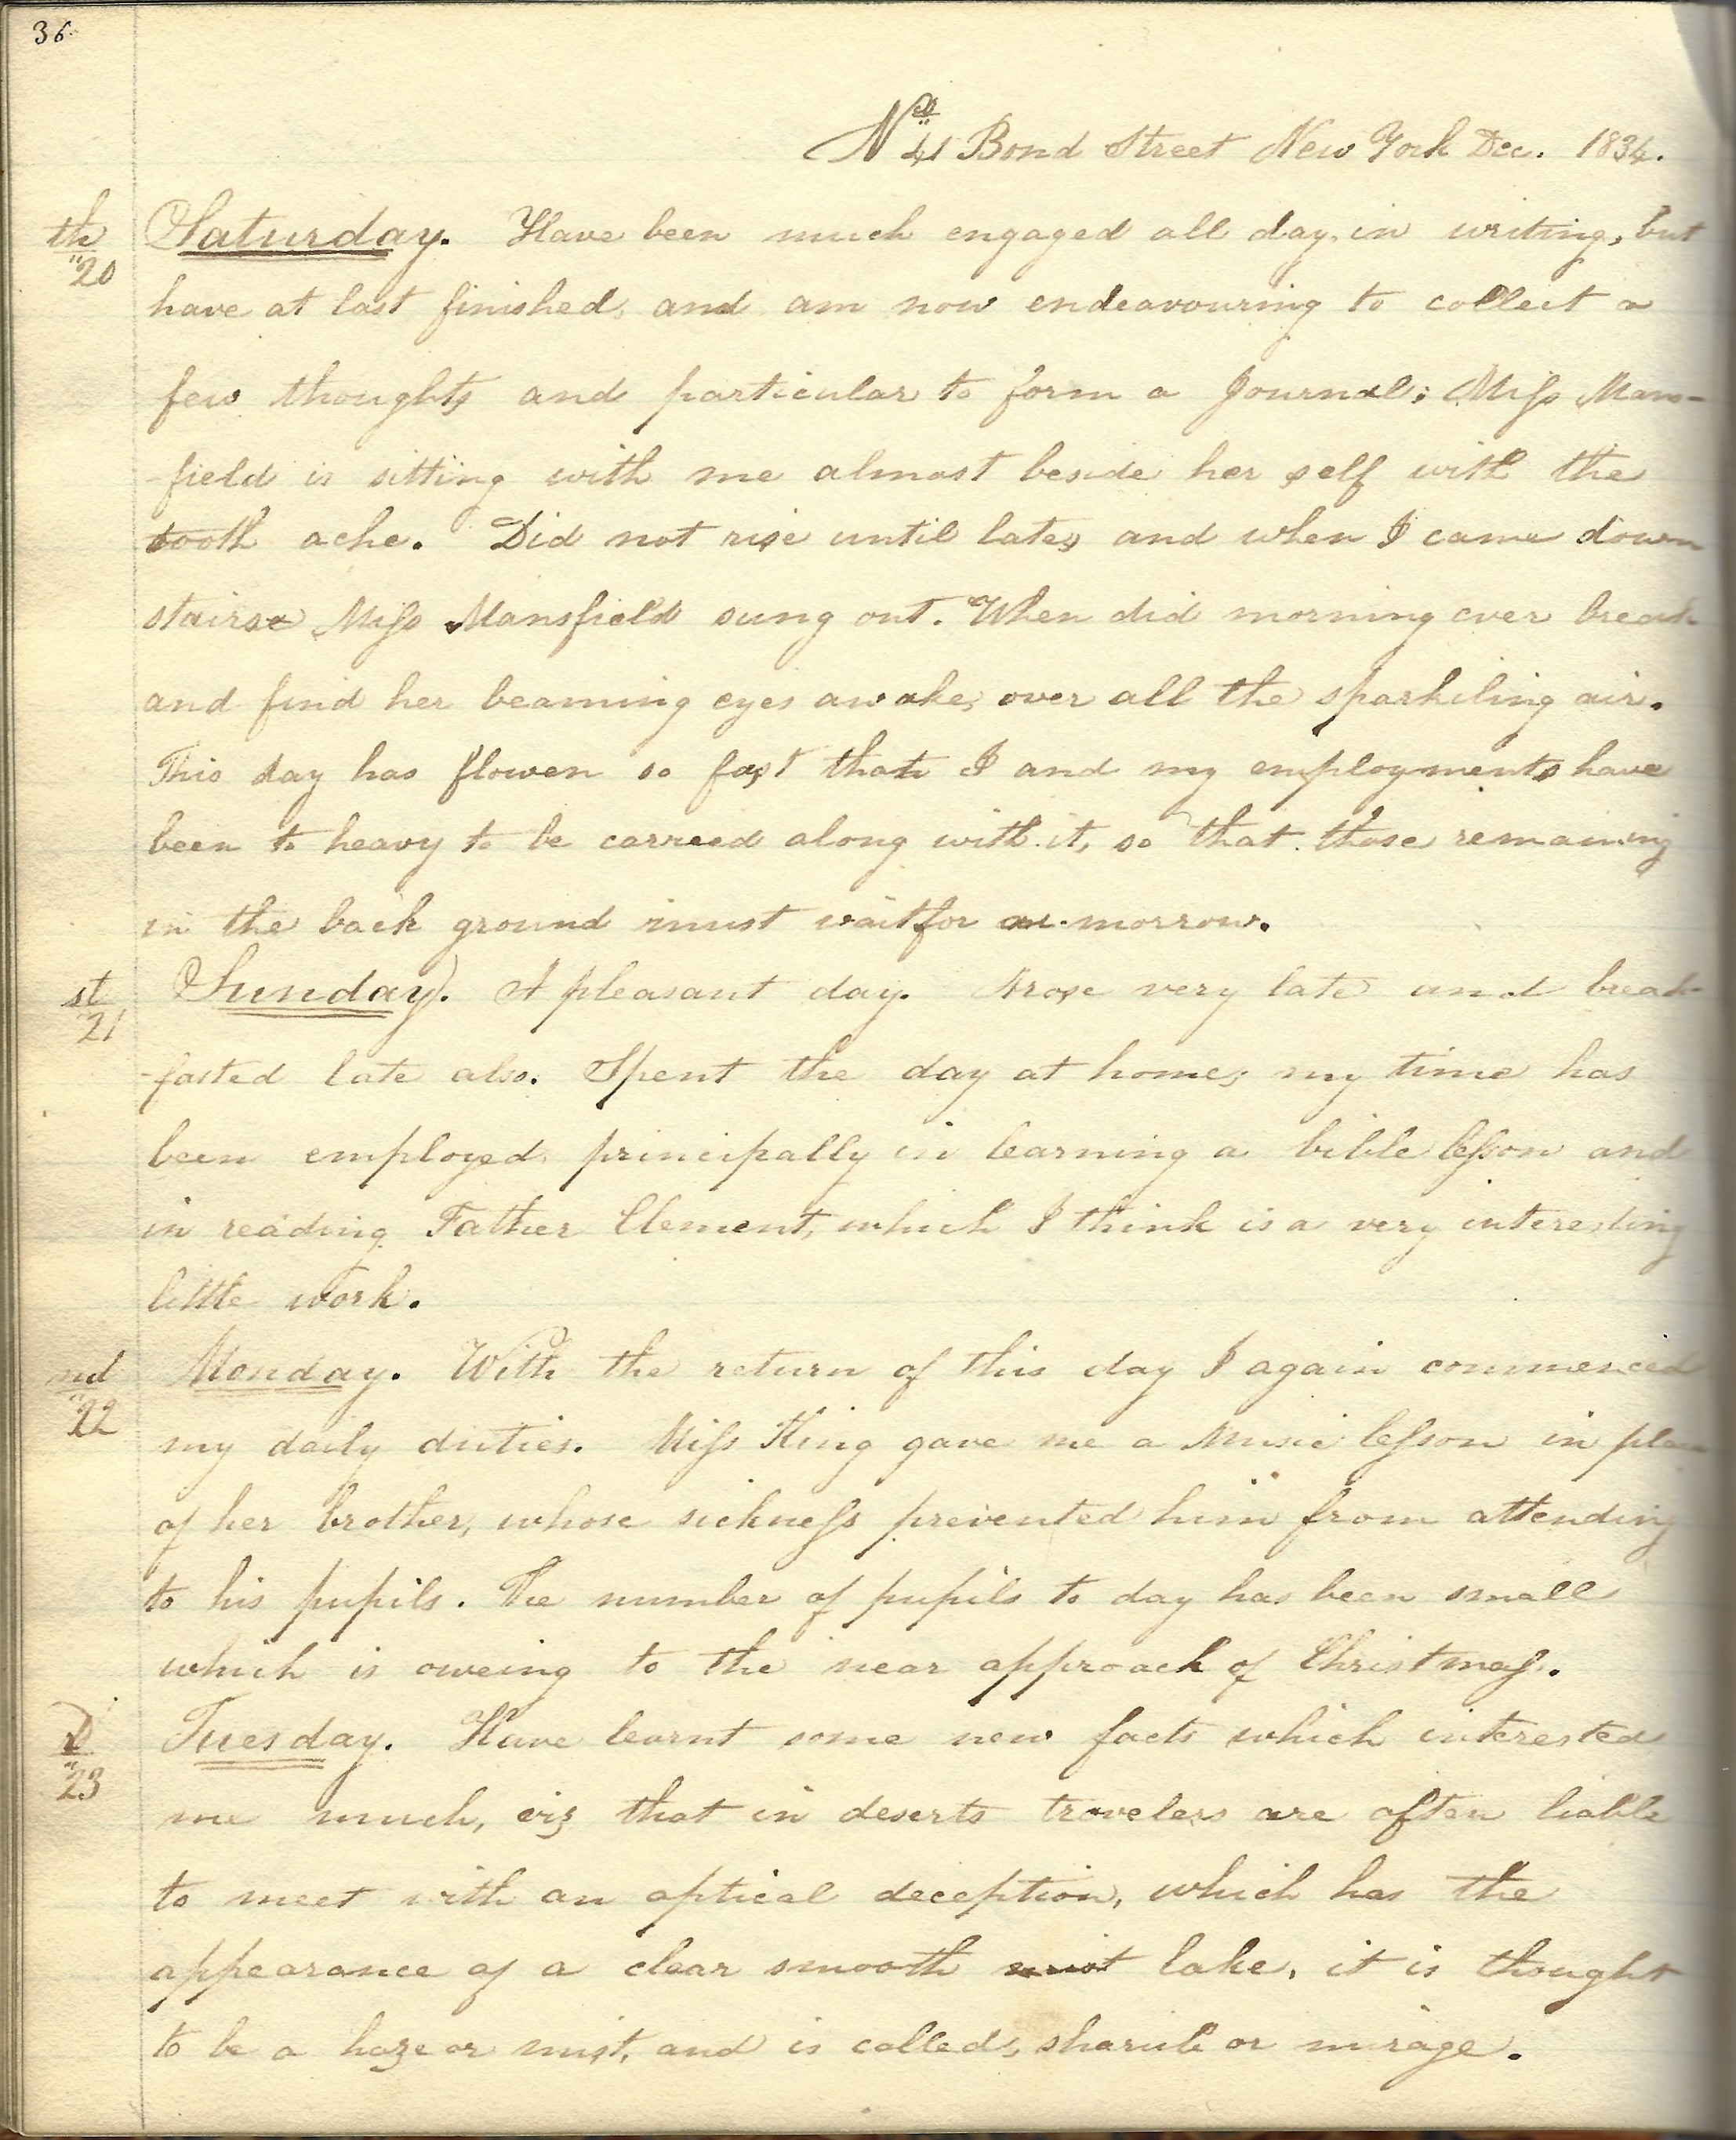 36
No 41 Bond Street New York Dec. 1834.
th Saturday. Have been much engaged all day in writing, but
20
have at last finished, and am now endeavouring to collect a
few thoughts and particular to form a Journal; Miss Mans-
-field is sitting with me almost beside her self with the
tooth ache. Did not rise until late, and when I came down
stairs Miss Mansfield sung out. "When did morning ever break
and find her beaming eyes awake, over all the sparkiling air.
This day has flowen so fast that I and my employments have
been to heavy to be carreed along with it, so that those remaining
in the back ground must wait for morrow.
st Sunday. A pleasant day. Arose very late and break-
21
-fasted late also. Spent the day at home; my time has
been employed principally in learning a bible lesson and
in reading Father Clement, which I think is a very interesting
little work.
nd Monday. With the return of this day I again commenced
22
my daily duties. Miss King gave me a Music lesson in
of her brother, whose sickness prevented him from attending
to his pupils. The number of pupils to day has been small
which is oweing to the near approach of Christmas.
D Tuesday. Have learnt some new facts which interested
23
me much, viz that in deserts travelers are often liable
to meet with an optical deception, which has the
appearance of a clear smooth lake, it is thought
to be a haze or mist, and is called, or mirage.